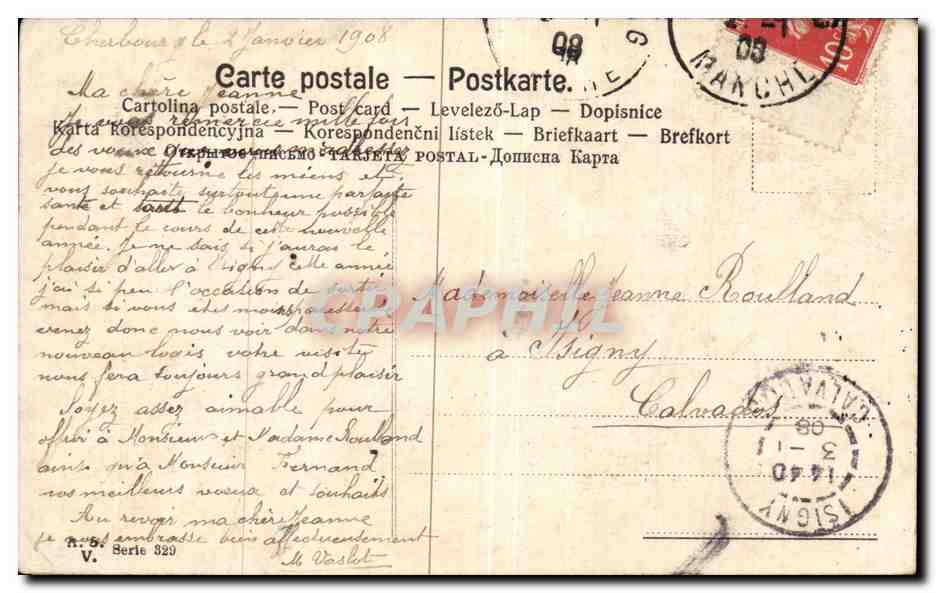 Cherbourg le 2 Janvier 1908
Carte postale — Postkarte.
Cartolina postale. — Post card — Levelező-Lap — Dopisnice
Karta korespondencyjna — Korespondenční lístek — Briefkaart — Brefkort
Открытое письмо - TARJETA POSTAL - Дописна Карта
Ma chère Jeanne
Je vous remercie mille fois
des voeux que vous m'adressez
je vous retourne les miens et
vous souhaite surtout une parfaite
santé et le bonheur possible
pendant le cours de cette nouvelle
année. Je ne sais si j'aurai le
plaisir d'aller à Isigny cette année
j'ai si peu l'occasion de sortir
mais si vous êtes moins
venez donc nous voir dans notre
nouveau logis votre visite
nous fera toujours grand plaisir
Soyez assez aimable pour
offrir à Monsieur et Madame Roulland
ainsi qu'à Monsieur Fernand
nos meilleurs voeux et souhaits
Au revoir ma chère Jeanne
je vous embrasse bien affectueusement
M Vastot
Mademoiselle Jeanne Roulland
à Isigny
Calvados
CPAPHIL
10c
08
G
08
MANCHE
CALVADOS
08
3 - 1
14 40
ISIGNY
A. S.
V.
Serie 329